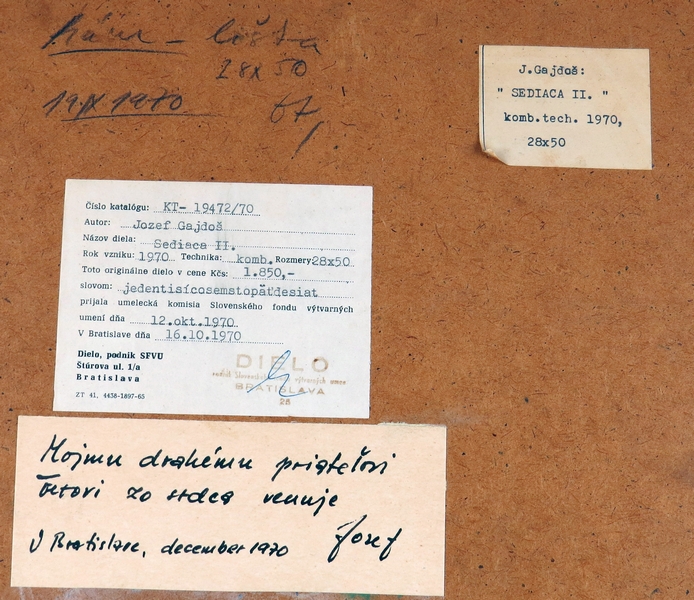 Rám - lišta
28x50
19.IX 1970
67,
J.Gajdoš:
" SEDIACA II. "
komb.tech. 1970,
28x50
Číslo katalógu: KT- 19472/70
Autor: Jozef Gajdoš
Názov diela: Sediaca II.
Rok vzniku: 1970 Technika: komb. Rozmery 28x50
Toto originálne dielo v cene Kčs: 1.850,-
slovom: jedentisícosemstopäťdesiat
prijala umelecká komisia Slovenského fondu výtvarných
umení dňa 12.okt.1970
V Bratislave dňa 16.10.1970
Dielo, podnik SFVU
Štúrova ul. 1/a
Bratislava
ZT 41, 4438-1897-65
DIELO
BRATISLAVA
28
Mojmu drahému priateľovi
zo srdca venuje
V Bratislave, december 1970 Jozef